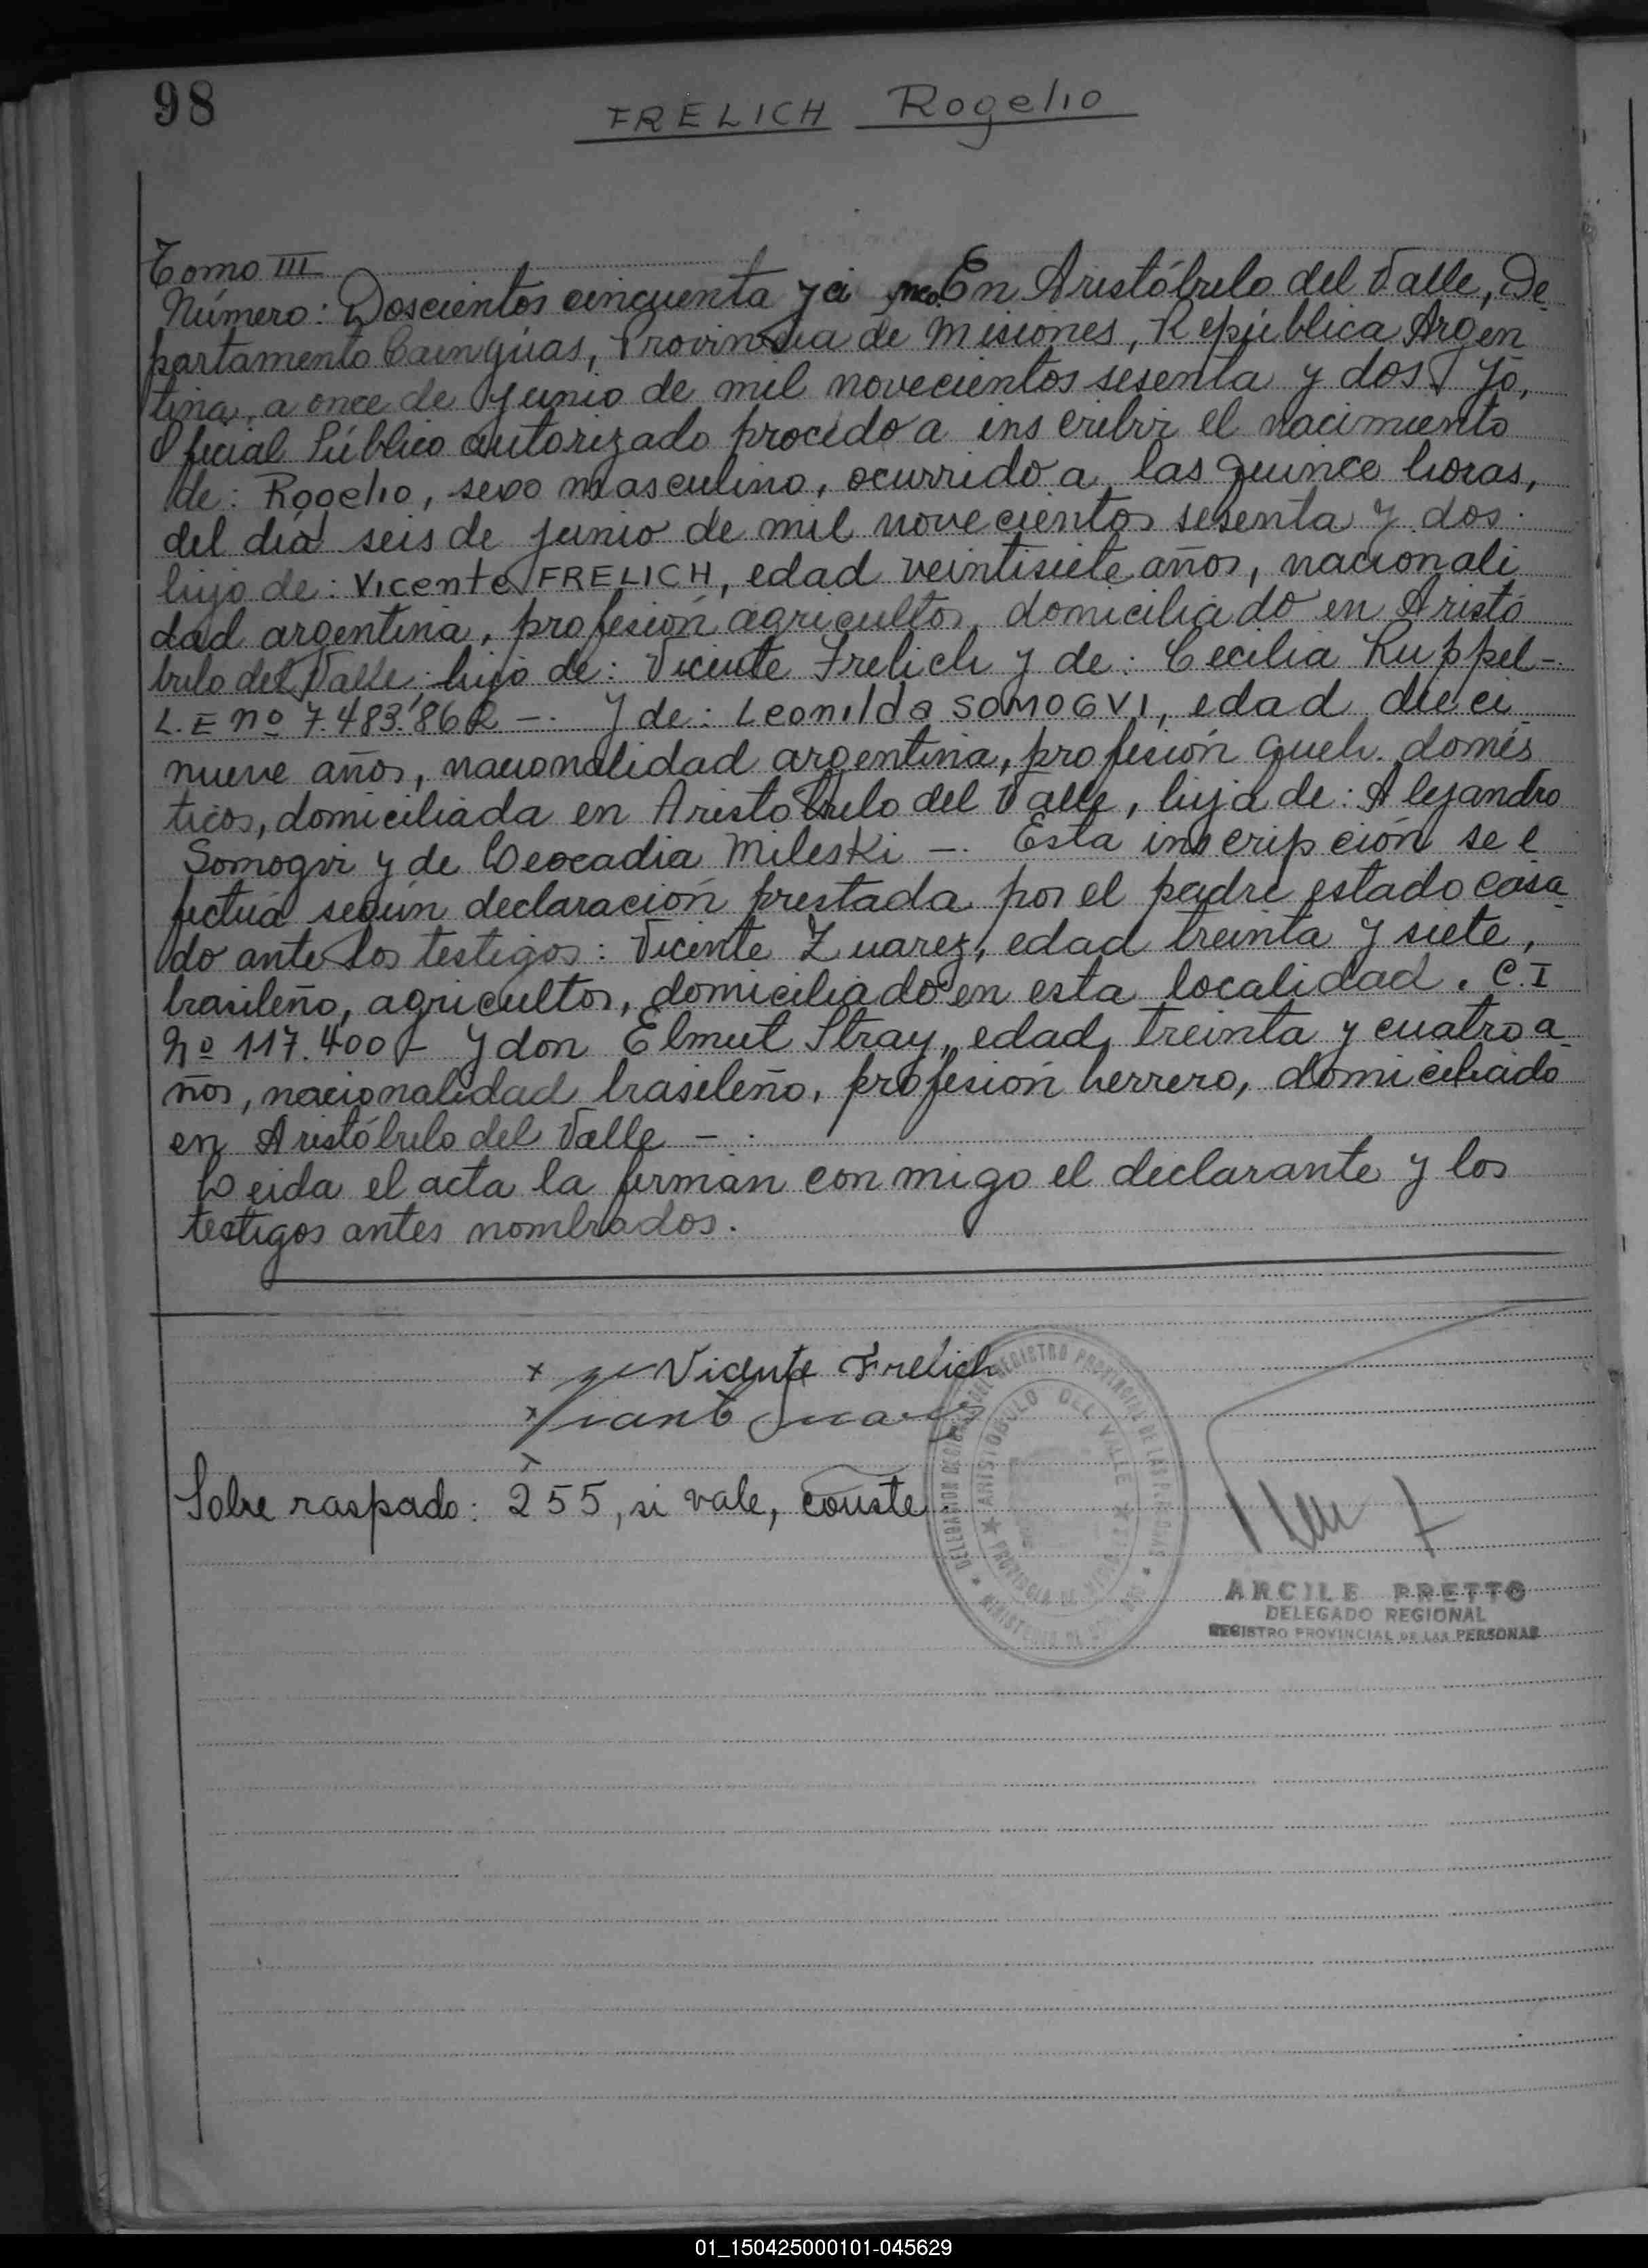 98
FRELICH Rogelio
Tomo III
Número: Doscientos cincuenta y ci nco. En Aristóbulo del Valle, De
partamento Cainguas, Provincia de Misiones, República Argen
tina, a once de junio de mil novecientos sesenta y dos. Yo,
Oficial Público autorizado procedo a inscribir el nacimiento
de: Rogelio, sexo masculino, ocurrido a las quince horas,
del día seis de junio de mil novecientos sesenta y dos.
hijo de: Vicente FRELICH, edad veintisiete años, nacionali
dad argentina, profesión agricultor, domiciliado en Aristó
bulo del Valle hijo de: Vicente Frelich y de: Cecilia Ruppel -.
L.E nº 7.483.862 -. Y de: Leonilda SOMOGVI, edad dieci
nueve años, nacionalidad argentina, profesión queh. domés
ticos, domiciliada en Aristóbulo del Valle, hija de: Alejandro
Somogvi y de Leocadia Mileski -. Esta inscripción se e
fectúa según declaración prestada por el padre estado casa
do ante los testigos: Vicente Zuarez, edad treinta y siete,
brasileño, agricultor, domiciliado en esta localidad. C.I
Nº 117.400 - Y don Elmut Stray, edad, treinta y cuatro a
ños, nacionalidad brasileño, profesión herrero, domiciliado
en Aristóbulo del Valle - .
Leida el acta la firman conmigo el declarante y los
testigos antes nombrados.
x Vicente Frelich
x
x
Sobre raspado: 255, si vale, conste.
REGISTRO PROVINCIAL DE LAS PERSONAS
ARISTOBULO DEL VALLE
PROVINCIA DE MISIONES
ARCILE PRETTO
DELEGADO REGIONAL
REGISTRO PROVINCIAL DE LAS PERSONAS
01_150425000101-045629